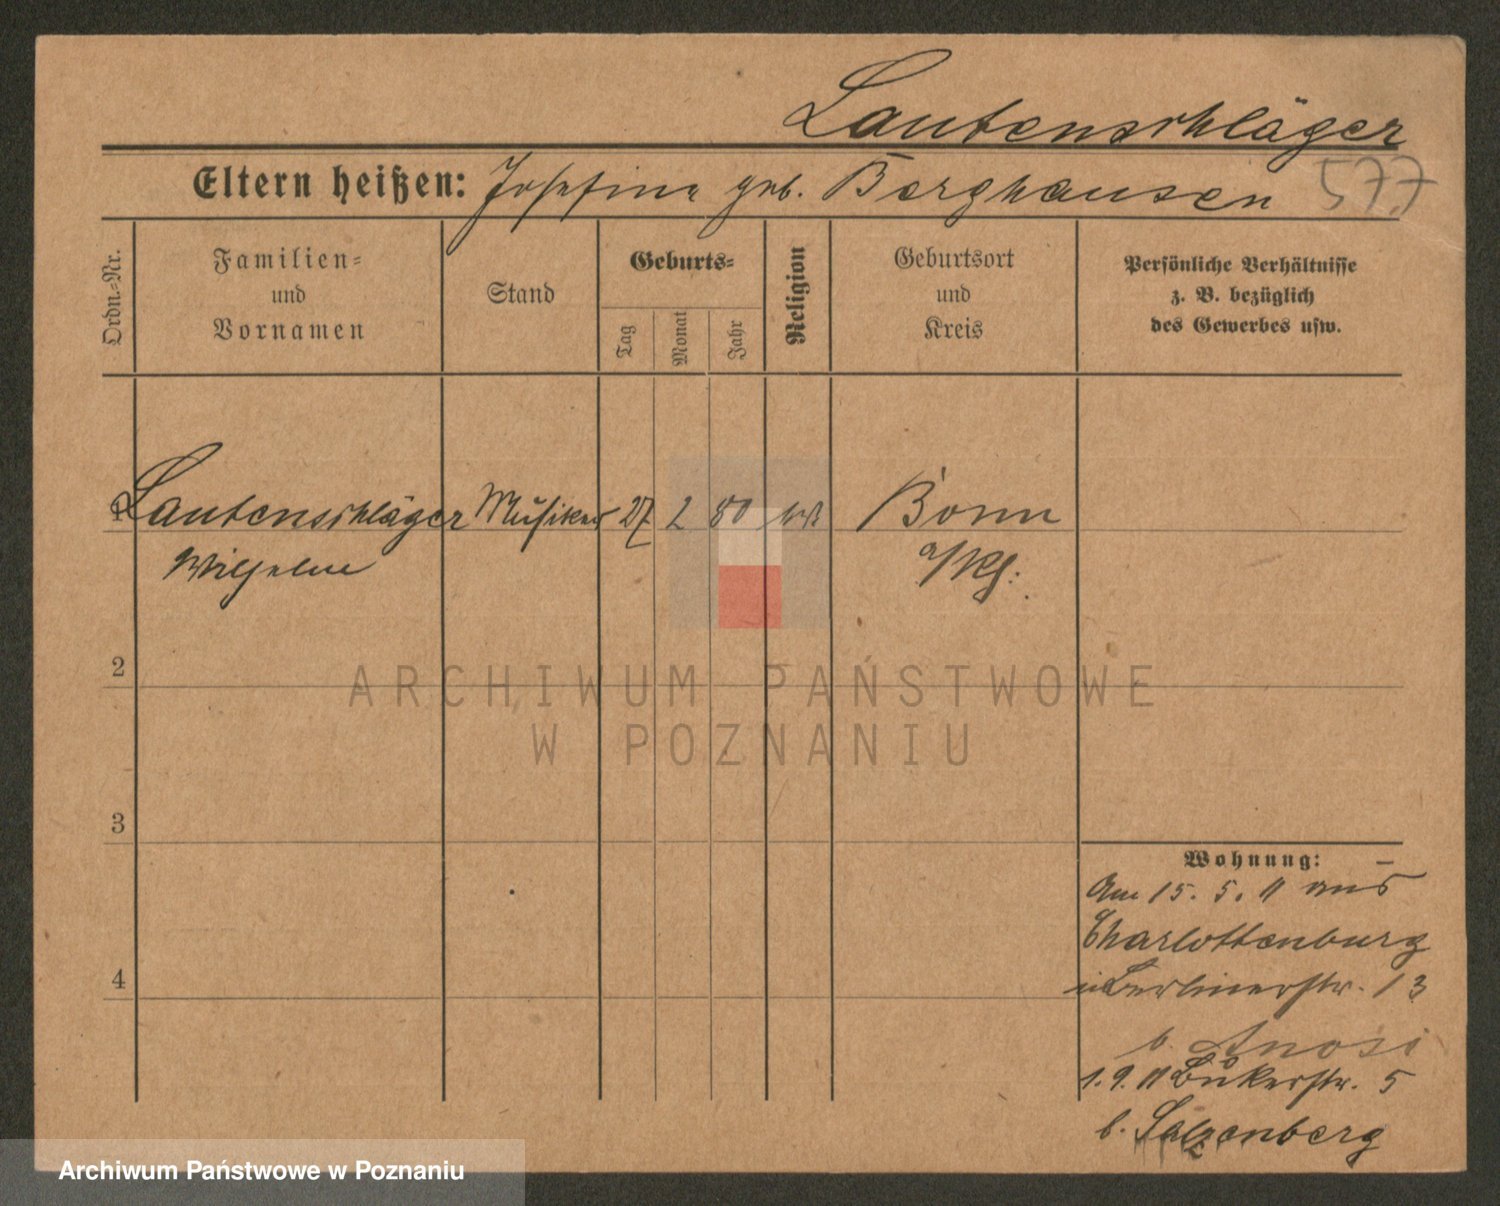 Lautenschläger
Eltern heißen: Josefine geb. Berghausen 577
Ordn.=Nr.
Familien=
und
Vornamen
Stand
Geburts=
Tag
Monat
Jahr
Religion
Geburtsort
und
Kreis
Persönliche Verhältnisse
z. B. bezüglich
des Gewerbes usw.
1 Lautenschläger Musiker 27 2 80 Bonn
Wilhelm a/Rh.
2
3
4
Wohnung:
Am 15. 5. 11 aus
Charlottenburg
Berlinerstr. 13
b. Anosi
1. 9. 11 Bukerstr. 5
b. Salzenberg
ARCHIWUM PAŃSTWOWE
W POZNANIU
Archiwum Państwowe w Poznaniu